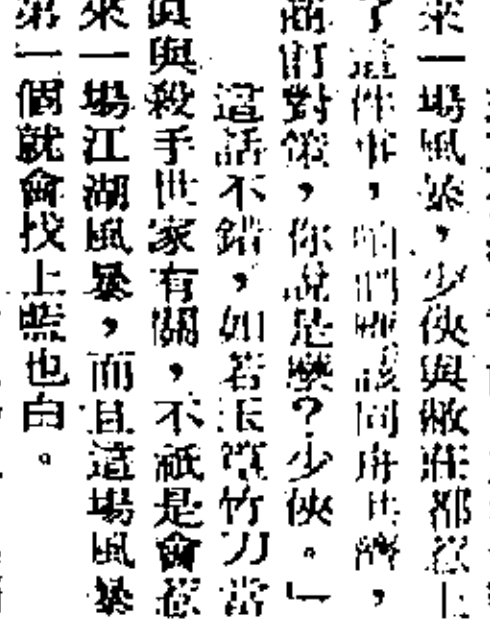 來一場風暴，少俠與敝莊都惹上
了這件事，咱們應該同舟共濟，
商訂對策，你說是麼？少俠。」
這話不錯，如若玉簟竹刀當
真與殺手世家有關，不祇是會惹
來一場江湖風暴，而且這場風暴
第一個就會找上藍也白。